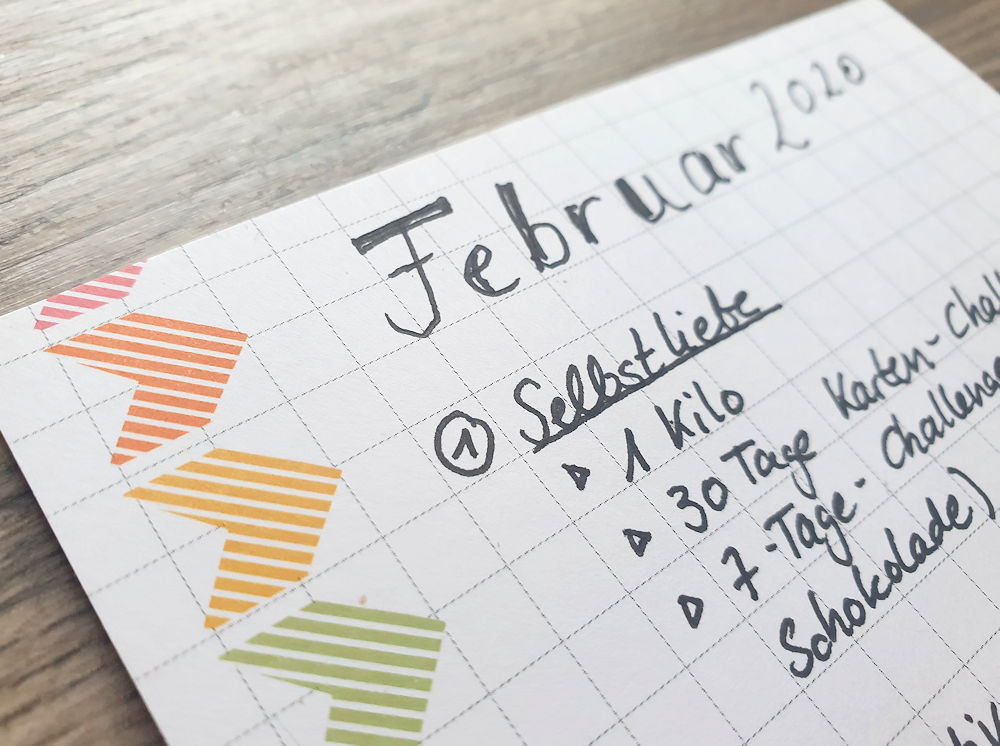 Februar 2020
① Selbstliebe
▷ 1 Kilo
▷ 30 Tage Karten-Chall
▷ 7-Tage-Challenge
Schokolade)